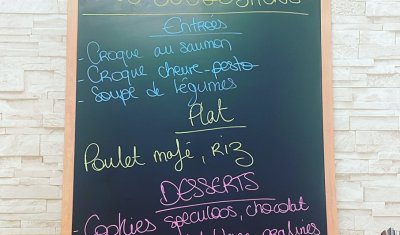 Entrées
- Croque au saumon
- Croque chèvre-pesto
- Soupe de légumes
Plat
Poulet mafé, Riz
DESSERTS
- Cookies speculoos, chocolat